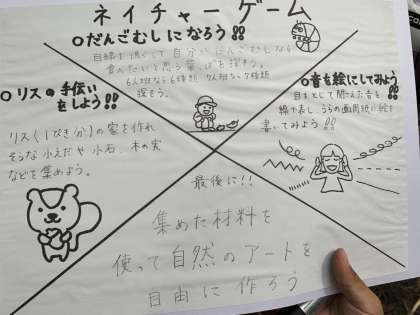 ネイチャーゲーム
○だんごむしになろう!!
目線を低くして自分がだんごむしなら
食べたいと思う葉っぱを探そう。
6人班なら6種類、7人班なら7種類
探そう。
○リスの手伝い
をしよう!!
リス(1ぴき分)の実を作れ
そうな小えだや小石、木の実
などを集めよう。
○音を絵にしてみよう!!
目をとじて聞こえた音を
線で表し、うらの画用紙に絵を
書いてみよう!!
最後に!!
集めた材料を
使って自然のアートを
自由に作ろう